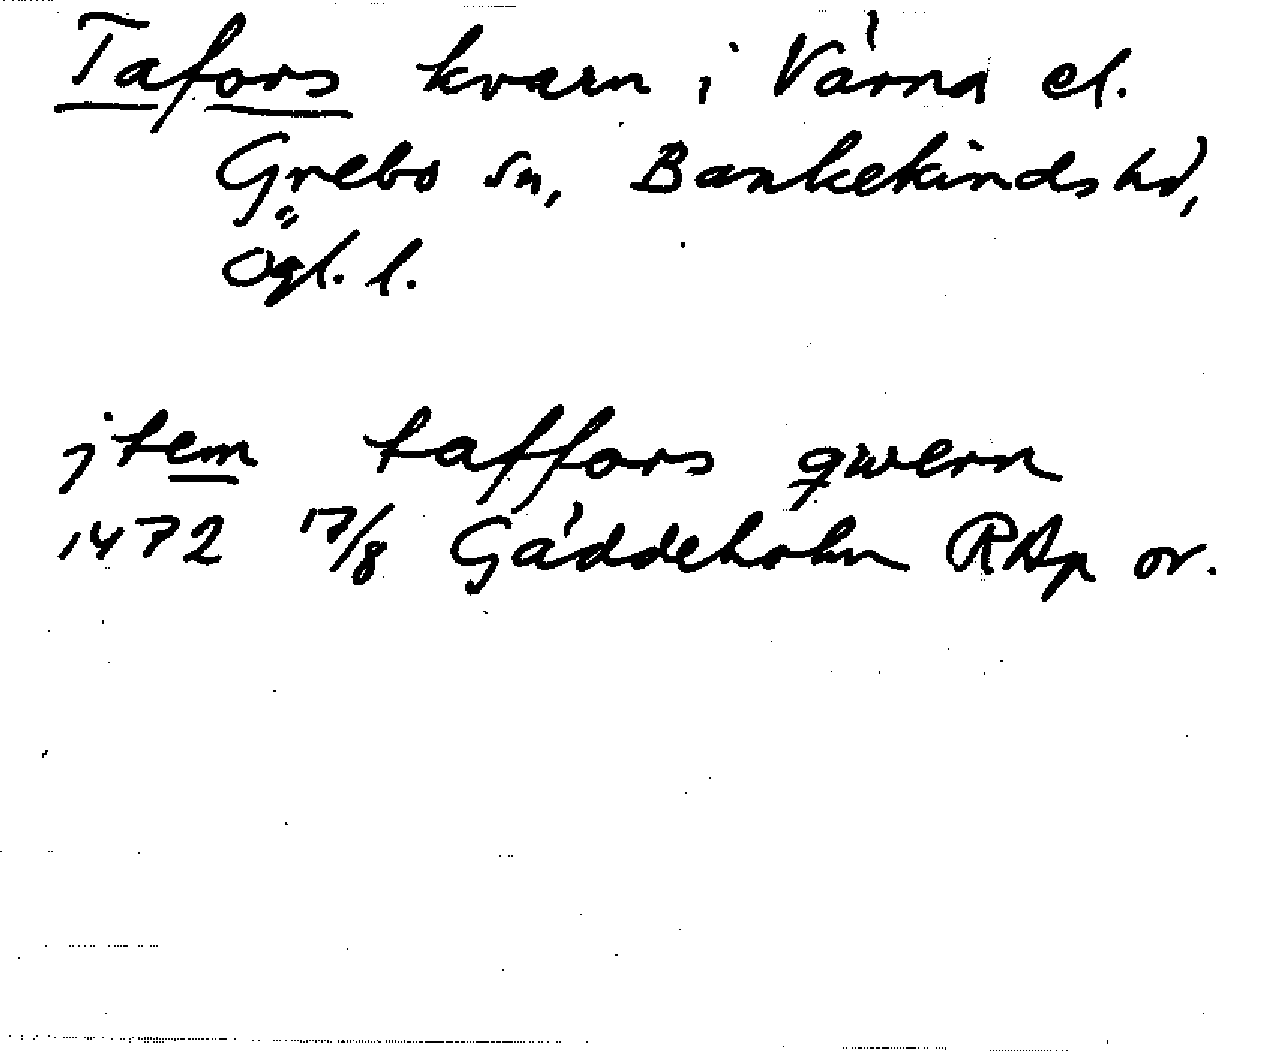 Tafors kvarn i Värna el.
Grebo sn, Bankekinds hd,
Ögl. l.
jtem taffors qwern
1472 17/8 Gäddeholm RAp or.